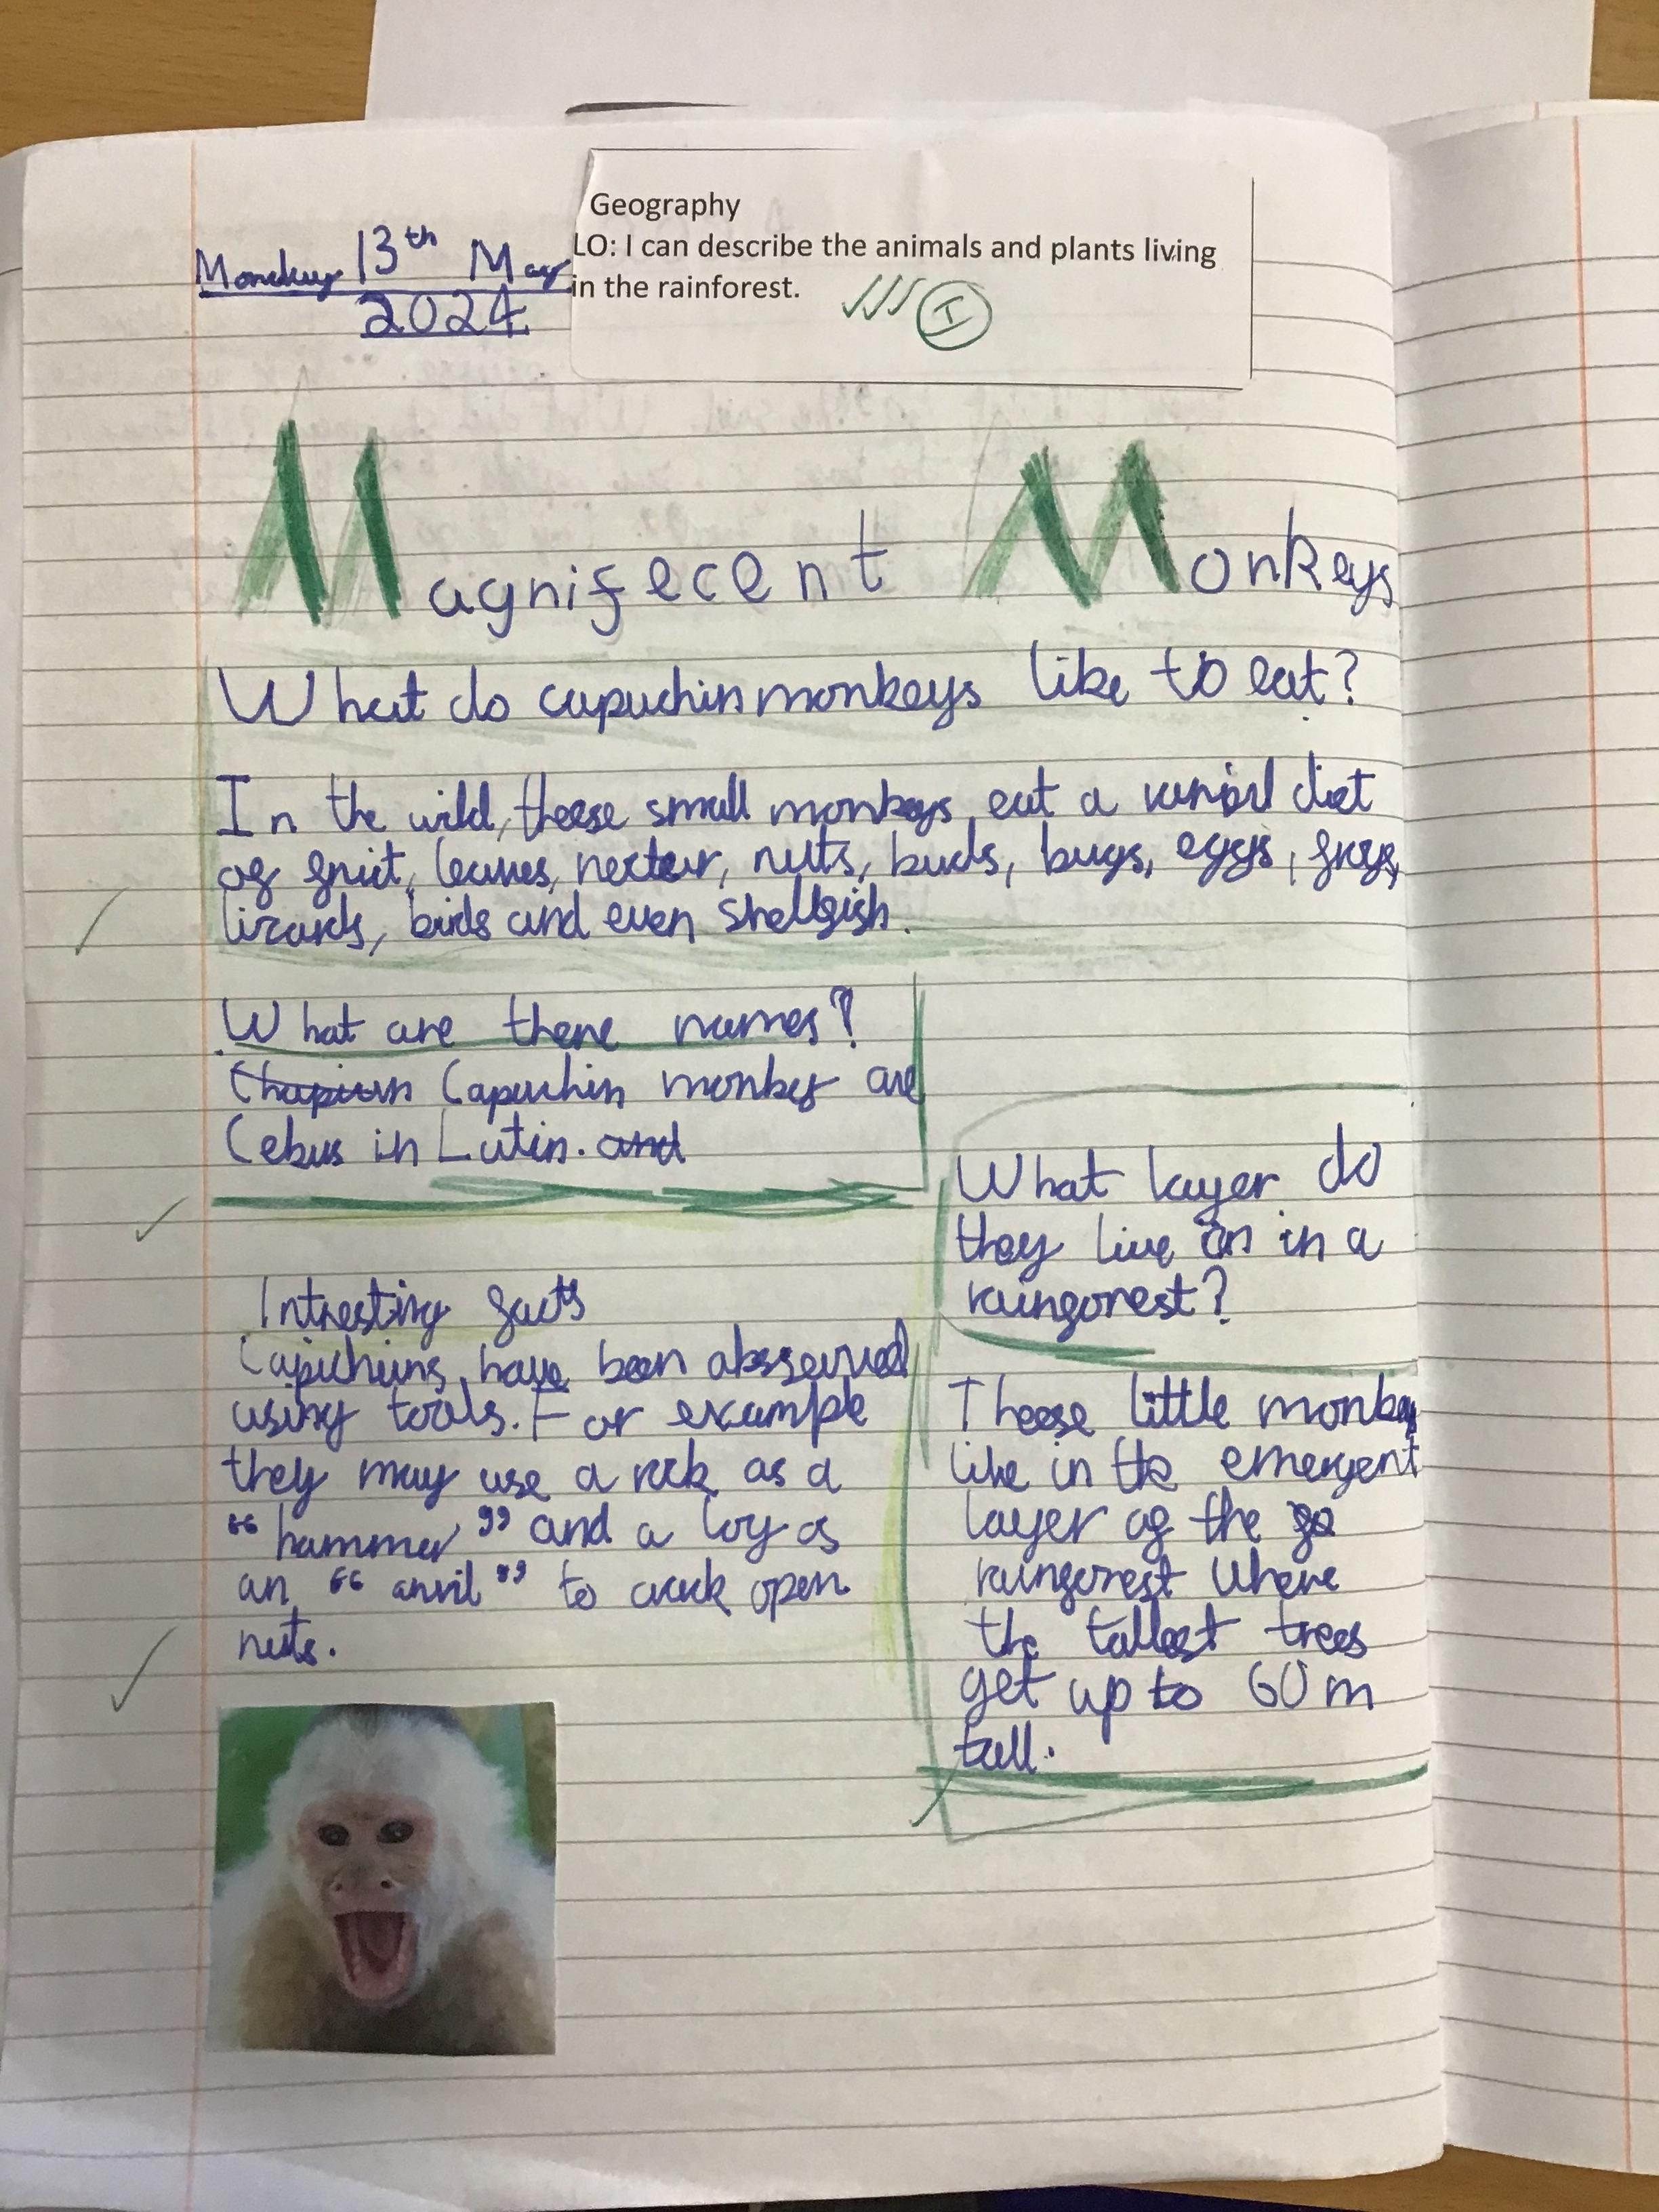 Geography
LO: I can describe the animals and plants living
in the rainforest.
I
Monday 13th May
2024
Magnifecent Monkeys
What do capuchin monkeys like to eat?
In the wild, theese small monkeys eat a varied diet
of fruit, leaves, nectar, nuts, buds, bugs, eggs, frogs,
lizards, birds and even shellfish.
What are there names?
Capuchin monkey are
Cebus in Latin. and
Intresting facts
Capuchins have been obsserved
using tools. For example
they may use a rock as a
“hammer” and a log as
an “anvil” to crack open
nuts.
What layer do
they live on in a
rainforest?
Theese little monkey
like in the emergent
layer of the
rainforest where
the tallest trees
get up to 60m
tall.